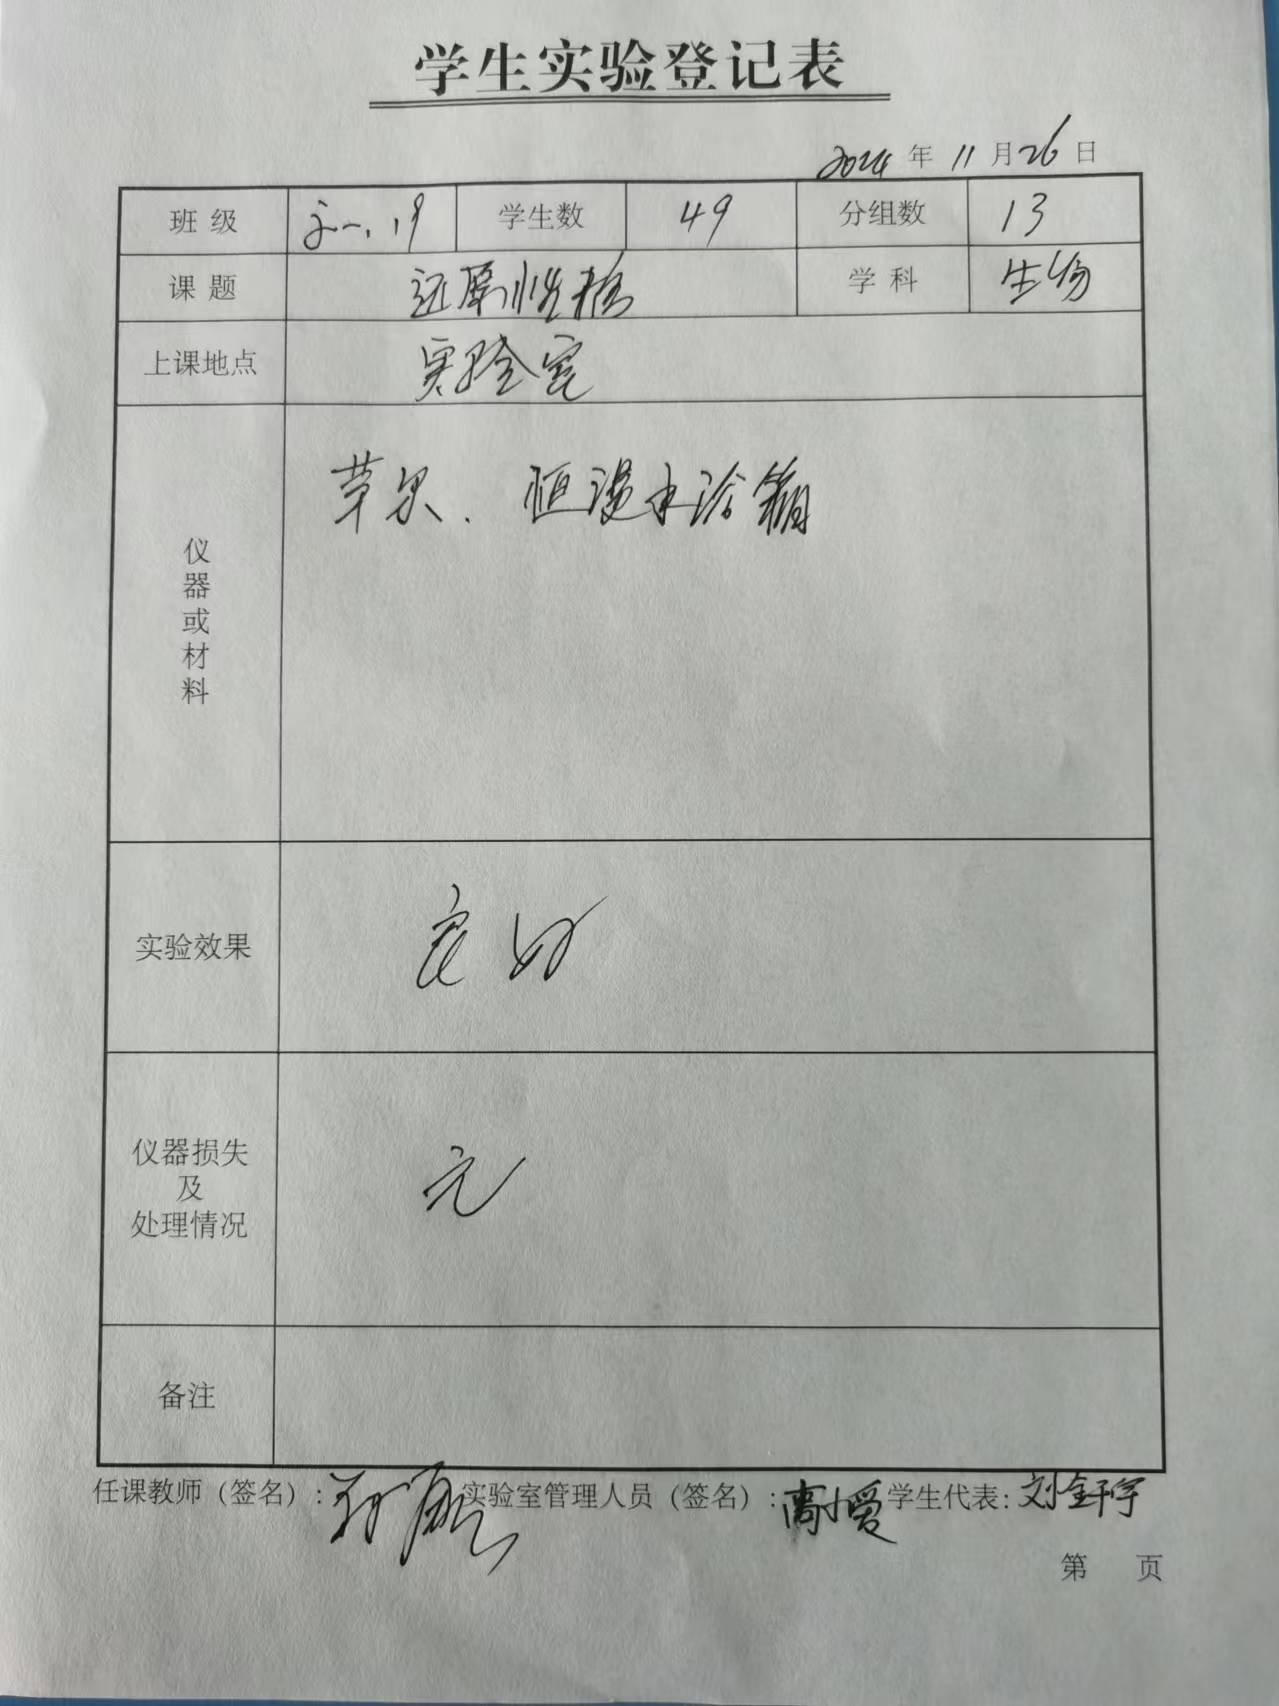 学生实验登记表
2024 年 11 月 26 日
班 级 高一.19 学生数 49 分组数 13
课 题 还原性糖 学 科 生物
上课地点 实验室
仪器或材料 苹果、恒温水浴箱
实验效果 良好
仪器损失
及
处理情况 无
备注
任课教师（签名）: 实验室管理人员（签名）: 高小爱 学生代表: 刘金阡宇
第 页